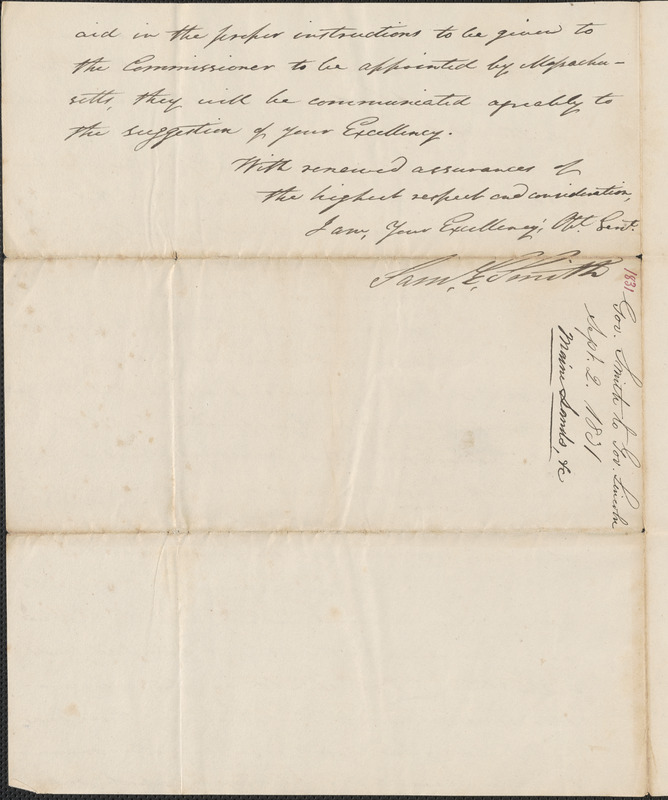 aid in the proper instructions to be given to
the Commissioner to be appointed by Massachu-
setts, they will be communicated agreeably to
the suggestion of your Excellency.
With renewed assurances of
the highest respect and consideration,
I am, Your Excellency's Obt. Servt.
Sam. E. Smith
1831
Gov. Smith to Gov. Lincoln
Sept. 2. 1831
Maine Lands, &c